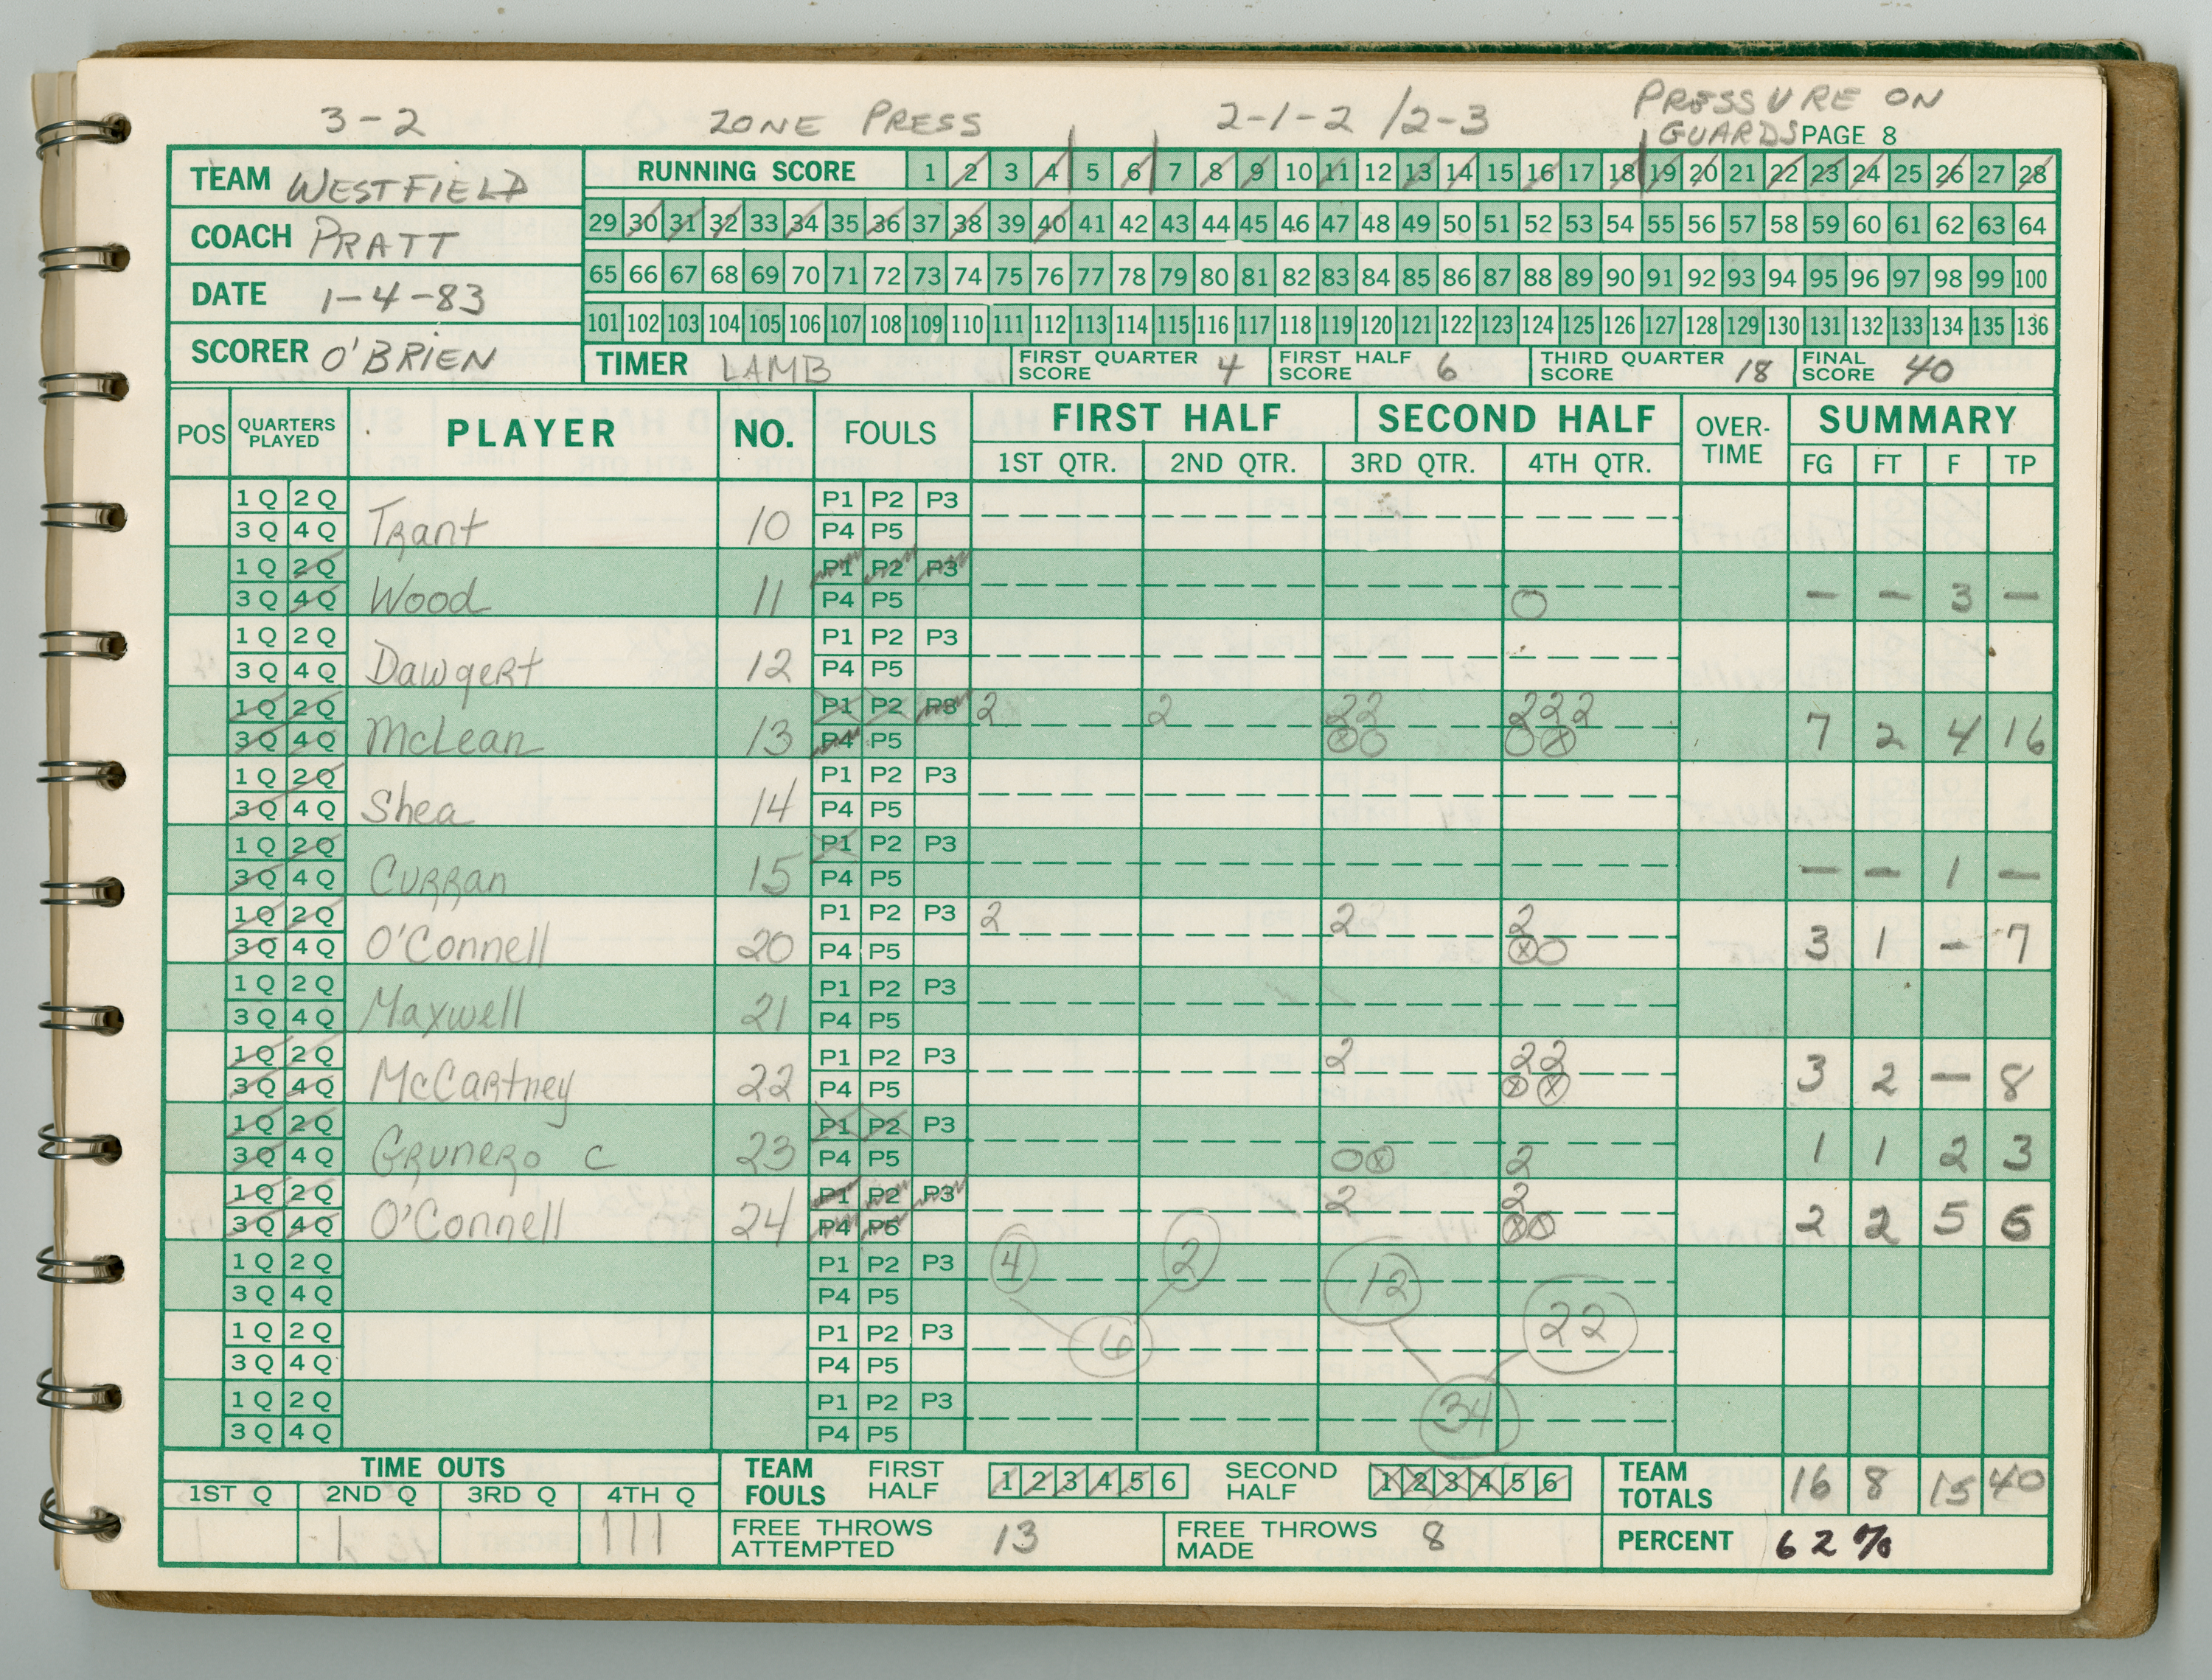 3-2 ZONE PRESS 2-1-2 / 2-3 PRESSURE ON
GUARDS PAGE 8
TEAM WESTFIELD
COACH PRATT
DATE 1-4-83
SCORER O'BRIEN
RUNNING SCORE 1 2 3 4 5 6 7 8 9 10 11 12 13 14 15 16 17 18 19 20 21 22 23 24 25 26 27 28
29 30 31 32 33 34 35 36 37 38 39 40 41 42 43 44 45 46 47 48 49 50 51 52 53 54 55 56 57 58 59 60 61 62 63 64
65 66 67 68 69 70 71 72 73 74 75 76 77 78 79 80 81 82 83 84 85 86 87 88 89 90 91 92 93 94 95 96 97 98 99 100
101 102 103 104 105 106 107 108 109 110 111 112 113 114 115 116 117 118 119 120 121 122 123 124 125 126 127 128 129 130 131 132 133 134 135 136
TIMER LAMB FIRST QUARTER SCORE 4 FIRST HALF SCORE 6 THIRD QUARTER SCORE 18 FINAL SCORE 40
POS QUARTERS PLAYED PLAYER NO. FOULS FIRST HALF SECOND HALF OVER-TIME SUMMARY
1ST QTR. 2ND QTR. 3RD QTR. 4TH QTR. FG FT F TP
1 Q 2 Q P1 P2 P3
3 Q 4 Q Trant 10 P4 P5
1 Q 2 Q P1 P2 P3
3 Q 4 Q Wood 11 P4 P5 O — — 3 —
1 Q 2 Q P1 P2 P3
3 Q 4 Q Dawgert 12 P4 P5
1 Q 2 Q P1 P2 P3 2 2 22 222
3 Q 4 Q McLean 13 P4 P5 ⊗O O⊗ 7 2 4 16
1 Q 2 Q P1 P2 P3
3 Q 4 Q Shea 14 P4 P5
1 Q 2 Q P1 P2 P3
3 Q 4 Q Curran 15 P4 P5 — — 1 —
1 Q 2 Q P1 P2 P3 2 2 2
3 Q 4 Q O'Connell 20 P4 P5 ⊗O 3 1 - 7
1 Q 2 Q P1 P2 P3
3 Q 4 Q Maxwell 21 P4 P5
1 Q 2 Q P1 P2 P3 2 22
3 Q 4 Q McCartney 22 P4 P5 ⊗⊗ 3 2 — 8
1 Q 2 Q P1 P2 P3
3 Q 4 Q Grunero C 23 P4 P5 O⊗ 2 1 1 2 3
1 Q 2 Q P1 P2 P3 2 2
3 Q 4 Q O'Connell 24 P4 P5 ⊗⊗ 2 2 5 6
1 Q 2 Q P1 P2 P3 4 2 12
3 Q 4 Q P4 P5
1 Q 2 Q P1 P2 P3 6 22
3 Q 4 Q P4 P5
1 Q 2 Q P1 P2 P3 34
3 Q 4 Q P4 P5
TIME OUTS
1ST Q 2ND Q 3RD Q 4TH Q
| |||
TEAM FOULS FIRST HALF 1 2 3 4 5 6 SECOND HALF 1 2 3 4 5 6 TEAM TOTALS 16 8 15 40
FREE THROWS ATTEMPTED 13 FREE THROWS MADE 8 PERCENT 62%